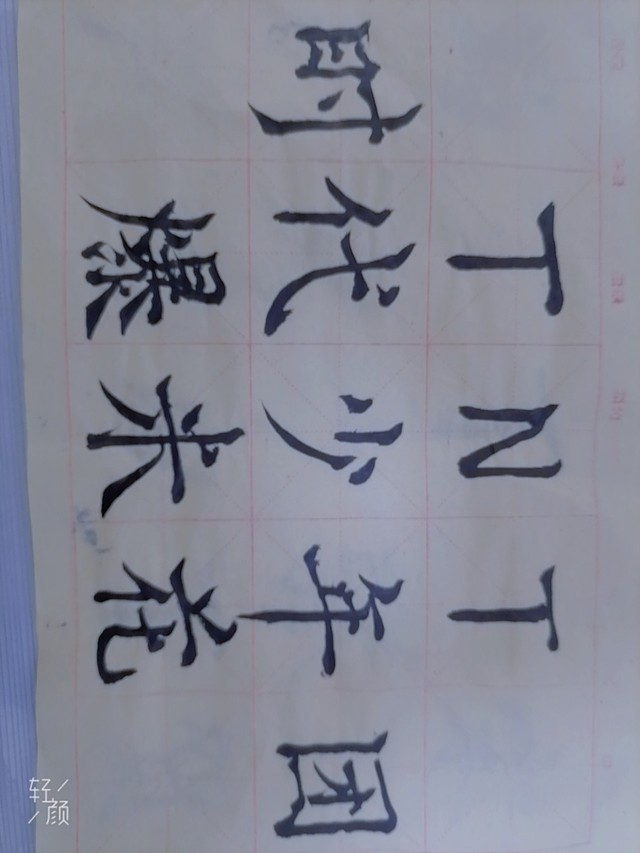 TNT
时代少年团
爆米花
轻颜